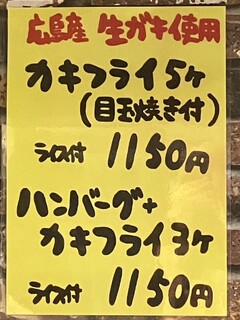 広島産 生ガキ使用
カキフライ5ヶ
(目玉焼き付)
ライス付 1150円
ハンバーグ+
カキフライ3ヶ
ライス付 1150円